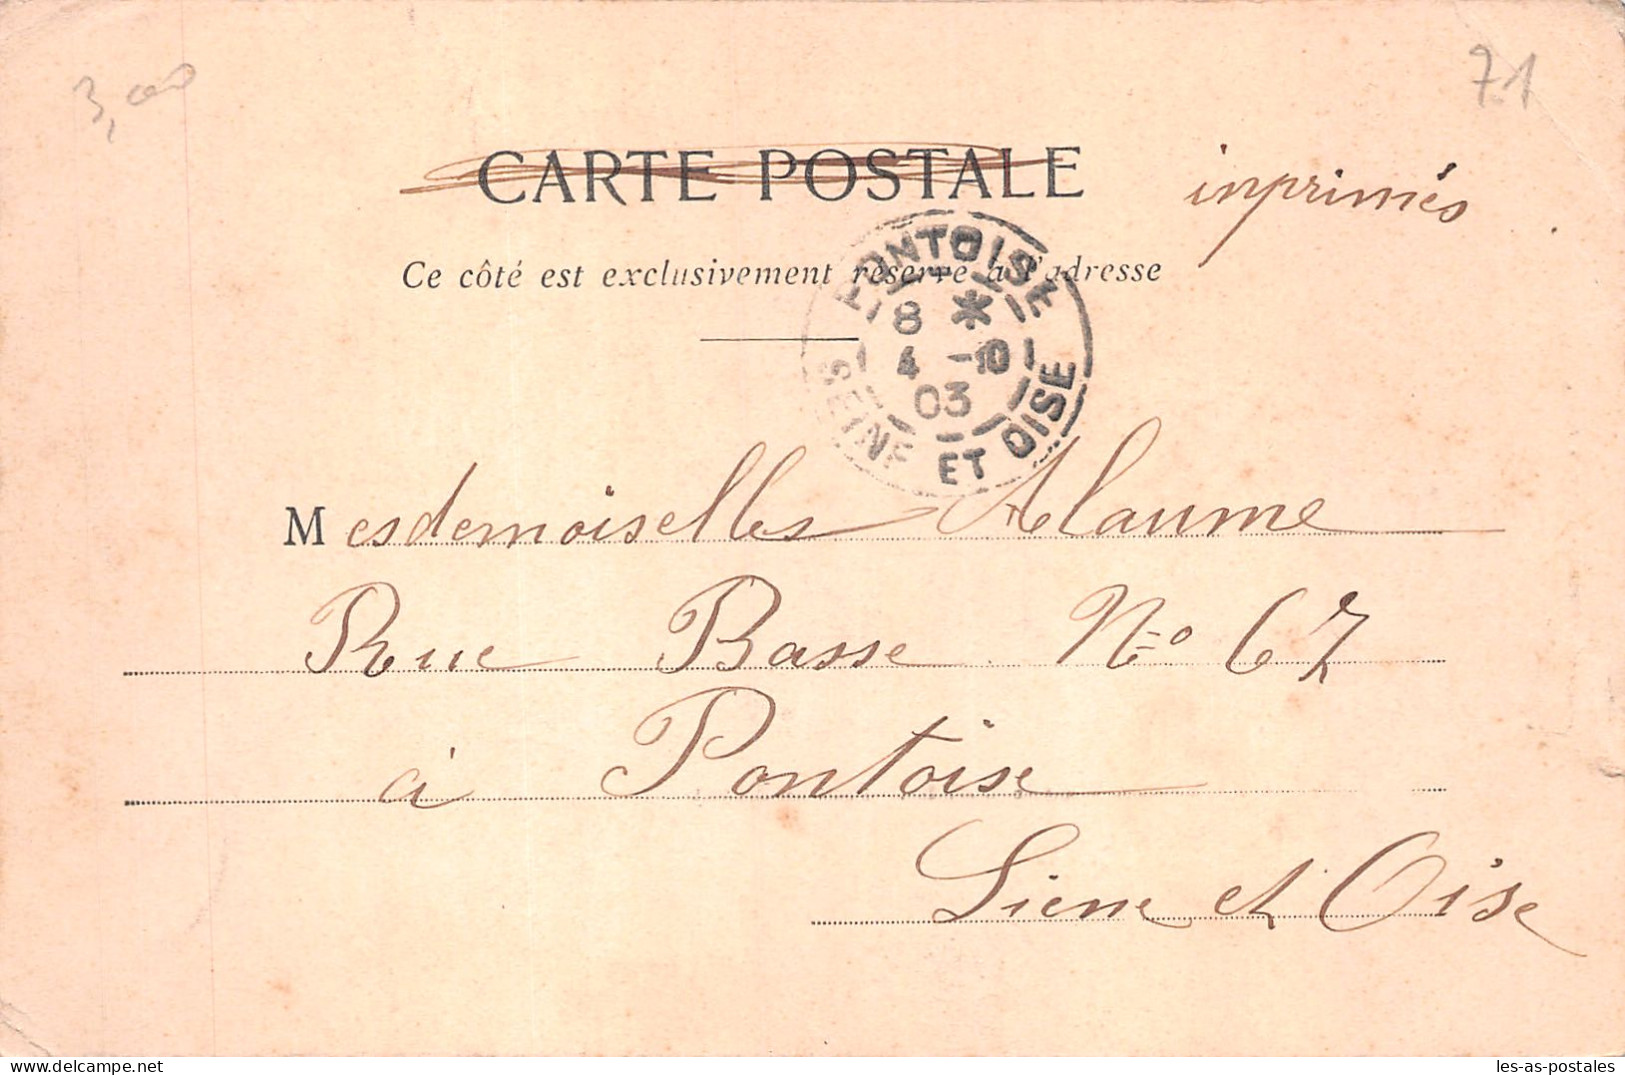 3,00
71
CARTE POSTALE
inprimés
Ce côté est exclusivement réservé à l'adresse
PONTOISE
8 *
4 -10
03
SEINE ET OISE
Mesdemoiselles Alaume
Rue Basse N=o 67
à Pontoise
Siene et Oise
les-as-postales